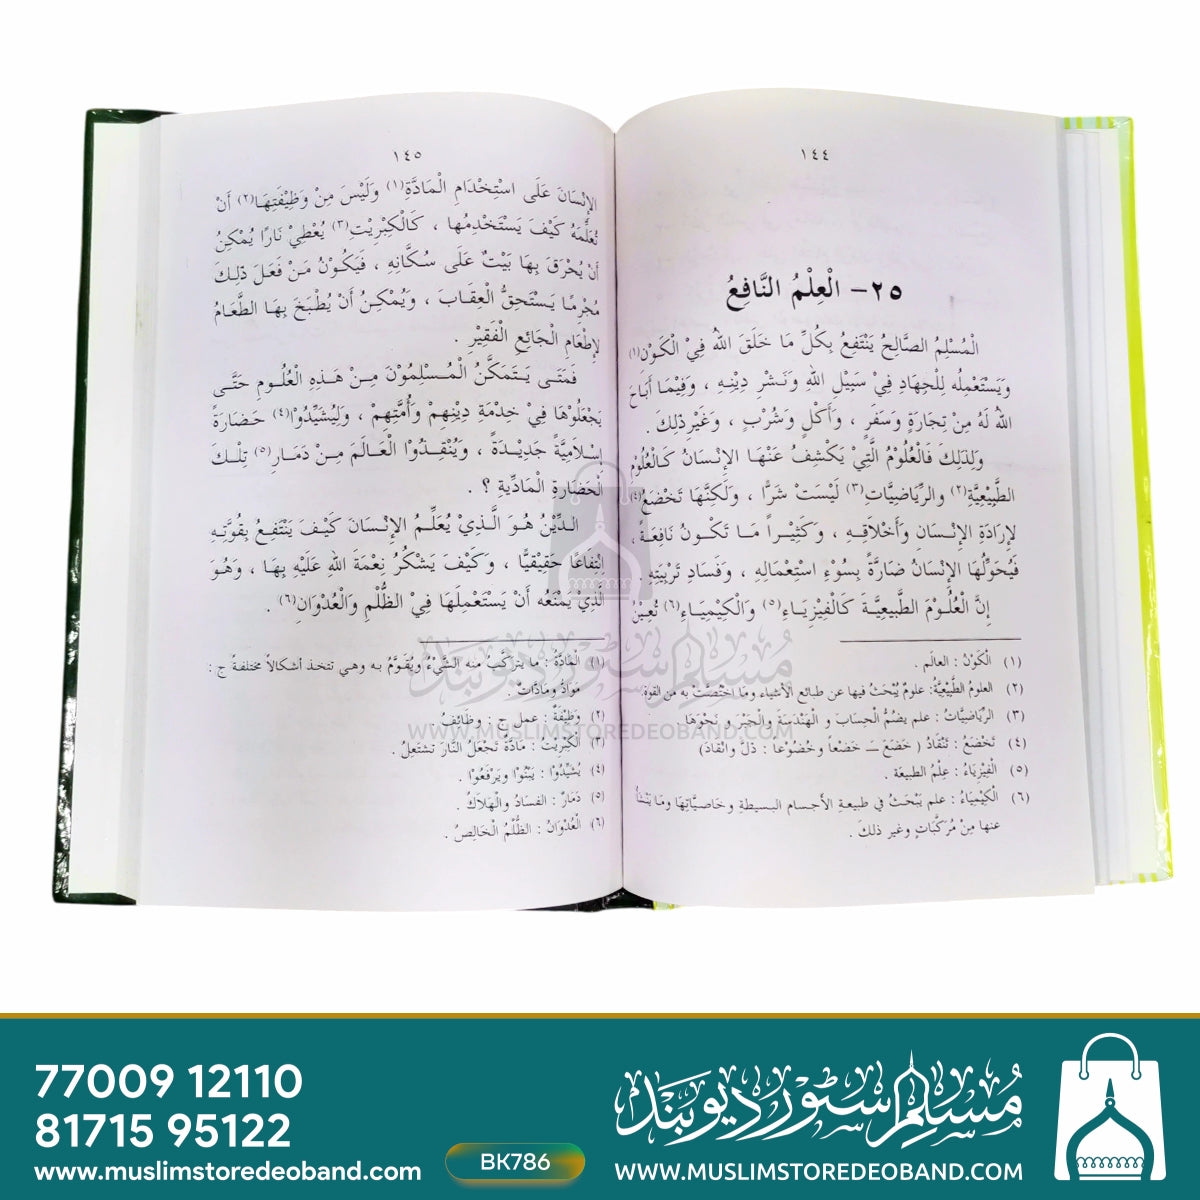 ١٤٤
٢٥- الْعِلْمُ النَّافِعُ
الْمُسْلِمُ الصَّالِحُ يَنْتَفِعُ بِكُلِّ مَا خَلَقَ اللهُ فِيْ الْكَوْنِ(١)
وَيَسْتَعْمِلُه لِلْجِهَادِ فِيْ سَبِيْلِ اللهِ وَنَشْرِ دِيْنِهِ ، وَفِيْمَا أَبَاحَ
اللهُ لَهُ مِنْ تِجَارَةٍ وَسَفَرٍ ، وَأَكْلٍ وَشُرْبٍ ، وَغَيْرِ ذٰلِكَ .
وَلِذٰلِكَ فَالْعُلُوْمُ الَّتِيْ يَكْشِفُ عَنْهَا الإِنْسَانُ كَالْعُلُوْمِ
الطَّبِيْعِيَّةِ(٢) والرِّيَاضِيَّاتِ(٣) لَيْسَتْ شَرًّا ، وَلٰكِنَّهَا تَخْضَعُ(٤)
لِإِرَادَةِ الإِنْسَانِ وَأَخْلَاقِهِ ، وَكَثِيْراً مَا تَكُوْنُ نَافِعَةً ،
فَيُحَوِّلُهَا الإِنْسَانُ ضَارَّةً بِسُوْءِ اسْتِعْمَالِهِ ، وَفَسَادِ تَرْبِيَتِهِ .
إِنَّ الْعُلُوْمَ الطَّبِيْعِيَّةَ كَالْفِيْزِيَاءِ(٥) وَالْكِيْمِيَاءِ(٦) تُعِيْنُ
(١) الْكَوْنُ : العالَم .
(٢) العلومُ الطَّبِيْعِيَّةُ: علومٌ يُبْحَثُ فيها عن طبائع الأشياء ومَا اخْتَصَّتْ به من القوة.
(٣) الرِّيَاضِيَّاتُ : علم يضُمُّ الْحِسَابَ و الْهَنْدَسَةَ والْجَبْرَ وَ نَحْوَهَا .
(٤) تَخْضَعُ : تَنْقَادُ ( خَضَعَ ــَـ خَضْعاً و خُضُوْعا : ذَلَّ وانْقادَ)
(٥) الْفِيْزِيَاءُ : عِلْمُ الطبيعَة .
(٦) الْكِيْمِيَاءُ : علم يَبْحَثُ في طبيعةِ الأجسام البسيطةِ و خَاصِيَّاتِهَا ومَا يَنْشَأُ
عنها مِنْ مُرَكَّبَاتٍ وغير ذلكَ .
١٤٥
الإِنْسَانَ عَلَى اسْتِخْدَامِ الْمَادَّةِ(١) وَلَيْسَ مِنْ وَظِيْفَتِهَا(٢) أَنْ
تُعَلِّمَهُ كَيْفَ يَسْتَخْدِمُها ، كَالْكِبْرِيْتِ(٣) يُعْطِيْ نَارًا يُمْكِنُ
أَنْ يُحْرَقَ بِهَا بَيْتٌ عَلَى سُكَّانِهِ ، فَيَكُوْنُ مَنْ فَعَلَ ذٰلِكَ
مُجْرِمًا يَسْتَحِقُّ الْعِقَابَ ، وَيُمْكِنُ أَنْ يُطْبَخَ بِهَا الطَّعَامُ
لِإِطْعَامِ الْجَائِعِ الْفَقِيْرِ .
فَمَتَى يَتَمَكَّنُ الْمُسْلِمُوْنَ مِنْ هَذِهِ الْعُلُومِ حَتَّى
يَجْعَلُوْهَا فِيْ خِدْمَةِ دِيْنِهِمْ وَأُمَّتِهِمْ ، وَلِيُشَيِّدُوْا(٤) حَضَارَةً
إِسْلَامِيَّةً جَدِيْدَةً ، وَيُنْقِذُوْا الْعَالَمَ مِنْ دَمَارِ(٥) تِلْكَ
الْحَضَارَةِ الْمَادِّيةِ ؟ .
الدِّيْنُ هُوَ الَّذِيْ يُعَلِّمُ الإِنْسَانَ كَيْفَ يَنْتَفِعُ بِقُوَّتِهِ
اِنْتِفَاعًا حَقِيْقِيًّا ، وَكَيْفَ يَشْكُرُ نِعْمَةَ اللهِ عَلَيْهِ بِهَا ، وَهُوَ
الَّذِيْ يَمْنَعُه أَنْ يَسْتَعْمِلَهَا فِيْ الظُّلْمِ وَالْعُدْوَانِ(٦) .
(١) الْمَادَّةُ : ما يتركَّبُ منه الشَّيْءُ ويُقَوَّمُ به وهي تتخذ أشكالاً مختلفةً ج :
مَوَادُّ ومَادَّاتٌ .
(٢) وَظِيْفَةٌ : عمل ج : وظَائِفُ
(٣) الْكِبْرِيْتُ : مَادَّةٌ تَجْعَلُ النَّارَ تشتعِلُ .
(٤) يُشَيِّدُوْا : يَبْنُوْا ويَرْفَعُوْا .
(٥) دَمَارٌ : الفسَادُ والْهَلَاكُ .
(٦) الْعُدْوَانُ : الظُّلْمُ الْخَالِصُ .
مسلم سٹور دیوبند
WWW.MUSLIMSTOREDEOBAND.COM
77009 12110
81715 95122
www.muslimstoredeoband.com
BK786
مسلم سٹور دیوبند
WWW.MUSLIMSTOREDEOBAND.COM